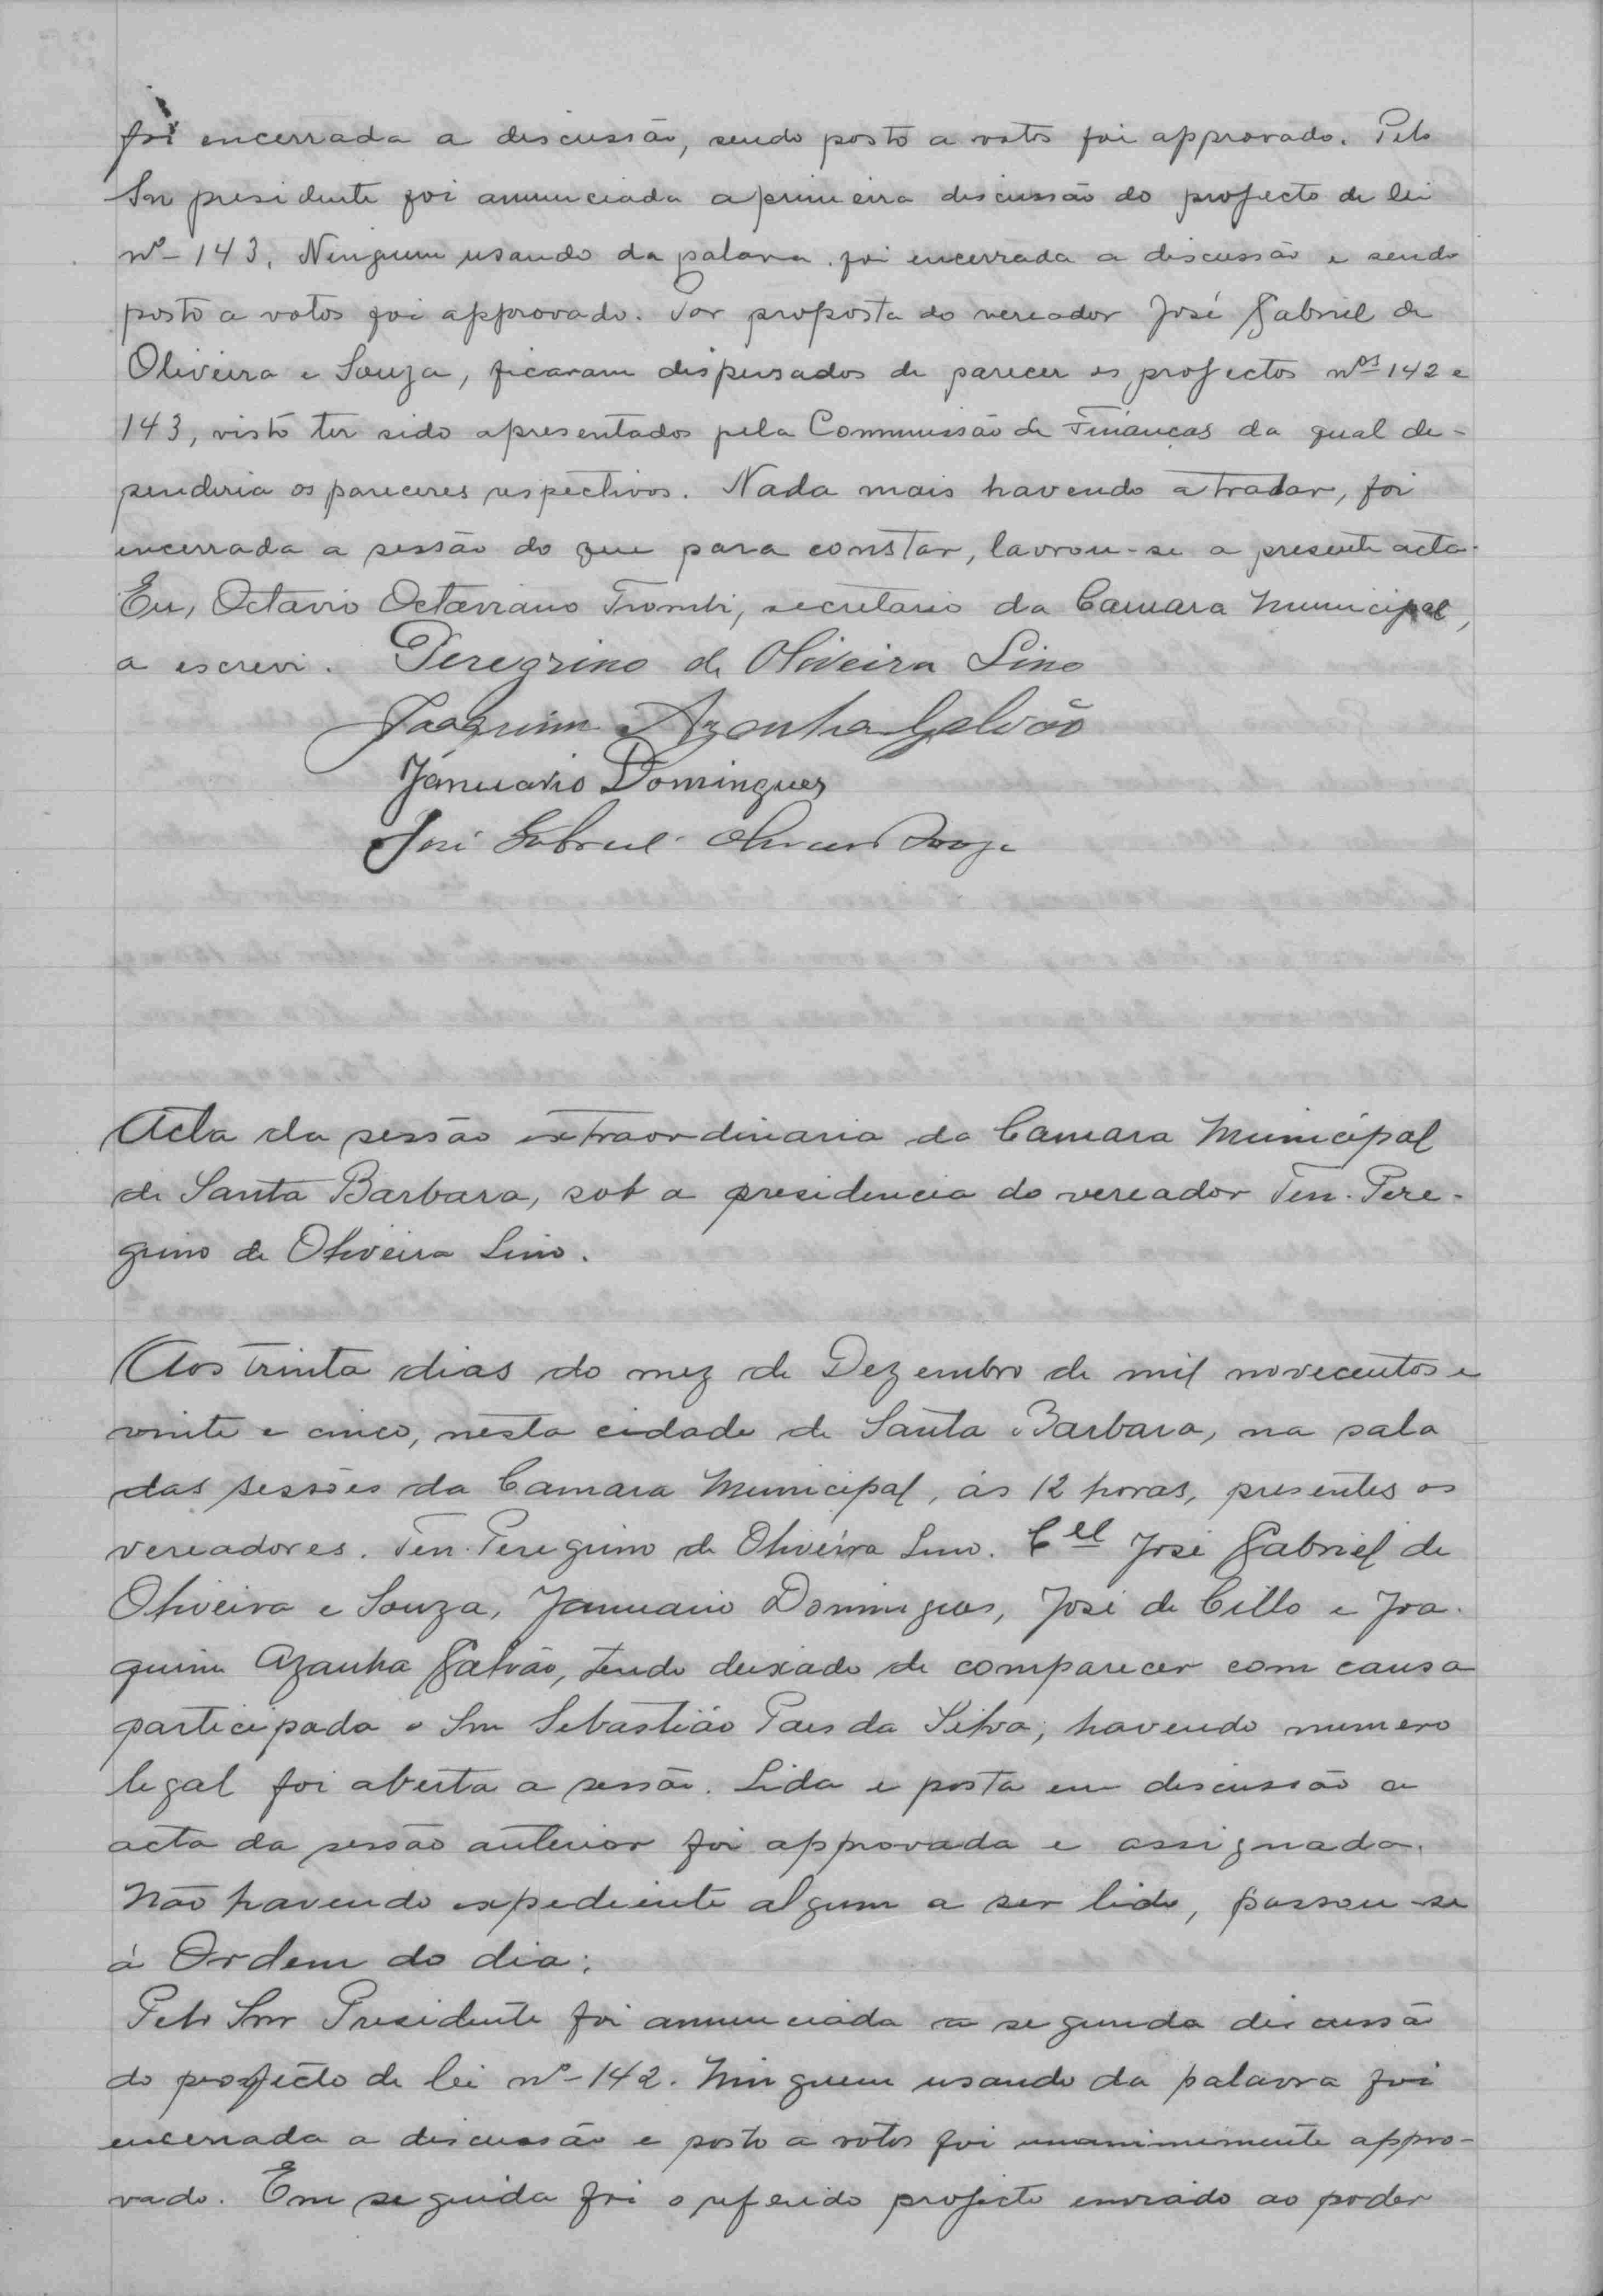 foi encerrada a discussão, sendo posto a votos foi approvado. Pelo
Snr presidente foi annunciada a primeira discussão do projecto de lei
nº 143. Ninguem usando da palavra foi encerrada a discussão e sendo
posto a votos foi approvado. Por proposta do vereador José Gabriel de
Oliveira e Souza, ficaram dispensados de parecer os projectos nos 142 e
143, visto ter sido apresentados pela Commissão de Finanças da qual de-
penderia os pareceres respectivos. Nada mais havendo a tratar, foi
encerrada a sessão do que para constar, lavrou-se a presente acta.
Eu, Octavio Octaviano Trombi, secretario da Camara Municipal,
a escrevi. Peregrino de Oliveira Lino
Joaquim Azanha Galvão
Januario Domingues
José Gabriel Oliveira Souza
Acta da sessão extraordinaria da Camara Municipal
de Santa Barbara, sob a presidencia do vereador Ten. Pere-
grino de Oliveira Lino.
Aos trinta dias do mez de Dezembro de mil novecentos e
vinte e cinco, nesta cidade de Santa Barbara, na sala
das sessões da Camara Municipal, ás 12 horas, presentes os
vereadores. Ten. Peregrino de Oliveira Lino. Cel José Gabriel de
Oliveira e Souza, Januario Domingues, José de Cillo e Joa-
quim Azanha Galvão, tendo deixado de comparecer com causa
participada o Snr Sebastião Paes da Silva; havendo numero
legal foi aberta a sessão. Lida e posta em discussão a
acta da sessão anterior foi approvada e assignada.
Não havendo expediente algum a ser lido, passou-se
á Ordem do dia:
Pelo Snr Presidente foi annunciada a segunda discussão
do projecto de lei nº 142. Ninguem usando da palavra foi
encerrada a discussão e posto a votos foi unanimemente appro-
vado. Em seguida foi o referido projecto enviado ao poder